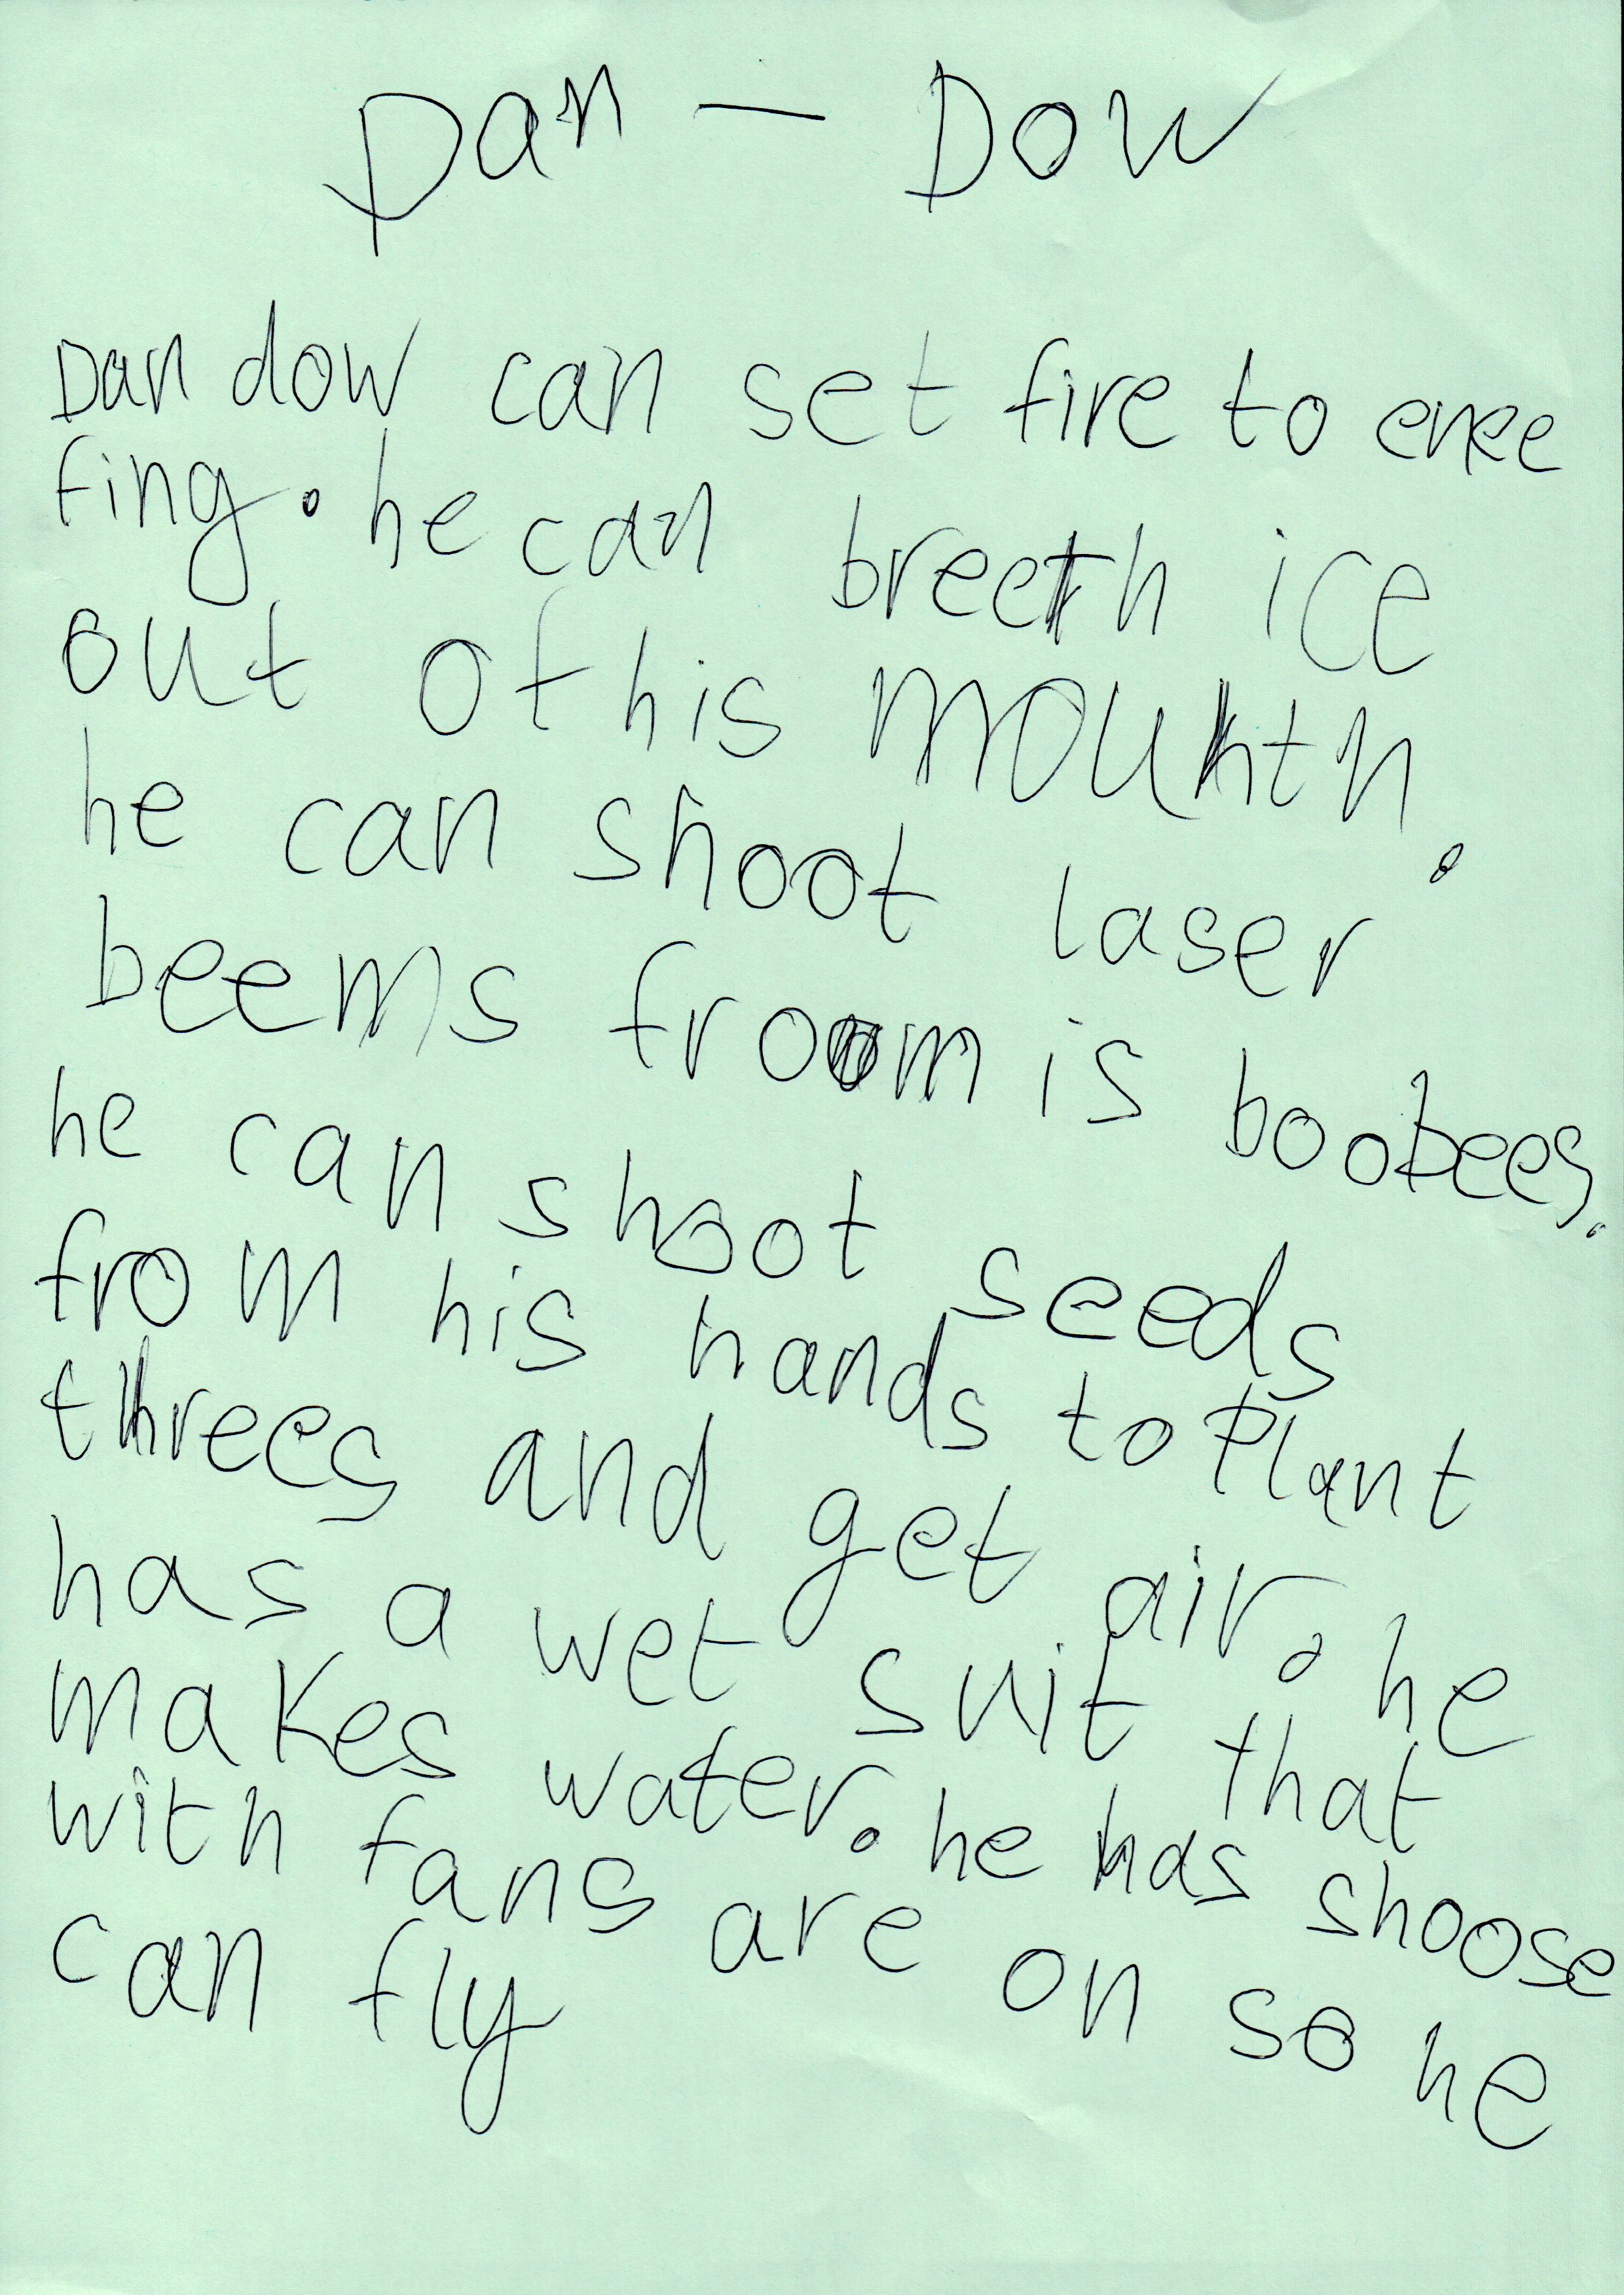 Dan — Dow
Dan dow can set fire to evree
fing. he can breeth ice
out of his mouhth.
he can shoot laser
beems from is boobees.
he can shoot seeds
from his hands to Plant
threes and get air. he
has a wet suit that
makes water. he has shoose
with fans are on so he
can fly